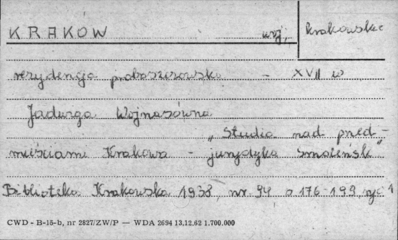 KRAKÓW woj. krakowskie
rezydencja proboszczowska - XVII w
Jadwiga Wojnasówna
"Studia nad przed-
mieściami Krakowa - jurydyka Smoleńsk"
Biblioteka Krakowska 1938, nr. 94 s 176-199, ryc 1
CWD - B-15-b, nr 2827/ZW/P — WDA 2694 13.12.62 1.700.000